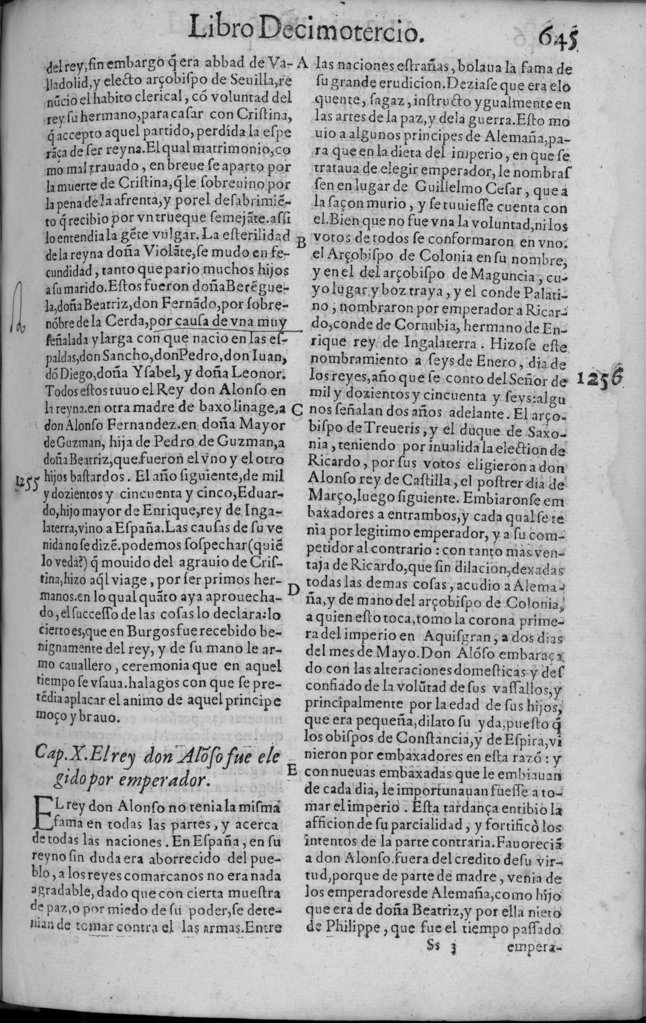 Libro Decimotercio. 645
del rey, sin embargo q̃ era abbad de Va-
lladolid, y electo arçobispo de Seuilla, re
nũcio el habito clerical, cõ voluntad del
rey su hermano, para casar con Cristina,
q̃ accepto aquel partido, perdida la espe
rãça de ser reyna. El qual matrimonio, co
mo mal trauado, en breue se aparto por
la muerte de Cristina, q̃ le sobreuino por
la pena de la afrenta, y por el desabrimiẽ-
to q̃ recibio por vn trueque semejãte. assi
lo entendia la gẽte vulgar. La esterilidad
de la reyna doña Violãte, se mudo en fe-
cundidad, tanto que pario muchos hijos
a su marido. Estos fueron doña Berẽgue-
la, doña Beatriz, don Fernãdo, por sobre-
nõbre de la Cerda, por causa de vna muy
señalada y larga con que nacio en las es-
paldas, don Sancho, don Pedro, don Iuan,
dõ Diego, doña Ysabel, y doña Leonor.
Todos estos tuuo el Rey don Alonso en
la reyna. en otra madre de baxo linage, a
don Alonso Fernandez. en doña Mayor
de Guzman, hija de Pedro de Guzman, a
doña Beatriz, que fueron el vno y el otro
hijos bastardos. El año siguiente, de mil
y dozientos y cincuenta y cinco, Eduar-
do, hijo mayor de Enrique, rey de Inga-
laterra, vino a España. Las causas de su ve
nida no se dizẽ. podemos sospechar (quiẽ
lo veda?) q̃ mouido del agrauio de Cris-
tina, hizo aq̃l viage, por ser primos her-
manos. en lo qual quãto aya aprouecha-
do, el successo de las cosas lo declara: lo
cierto es, que en Burgos fue recebido be-
nignamente del rey, y de su mano le ar-
mo cauallero, ceremonia que en aquel
tiempo se vsaua. halagos con que se pre-
tẽdia aplacar el animo de aquel principe
moço y brauo.
1255
Cap. X. El rey don Alõso fue ele
gido por emperador.
EL rey don Alonso no tenia la misma
fama en todas las partes, y acerca
de todas las naciones. En España, en su
reyno sin duda era aborrecido del pue-
blo, a los reyes comarcanos no era nada
agradable, dado que con cierta muestra
de paz, o por miedo de su poder, se dete-
nian de tomar contra el las armas. Entre
A
B
C
D
E
las naciones estrañas, bolaua la fama de
su grande erudicion. Deziase que era elo
quente, sagaz, instructo ygualmente en
las artes de la paz, y de la guerra. Esto mo
uio a algunos principes de Alemaña, pa-
ra que en la dieta del imperio, en que se
trataua de elegir emperador, le nombras
sen en lugar de Guillelmo Cesar, que a
la saçon murio, y se tuuiesse cuenta con
el. Bien que no fue vna la voluntad, ni los
votos de todos se conformaron en vno.
el Arçobispo de Colonia en su nombre,
y en el del arçobispo de Maguncia, cu-
yo lugar y boz traya, y el conde Palati-
no, nombraron por emperador a Ricar-
do, conde de Cornubia, hermano de En-
rique rey de Ingalaterra. Hizose este
nombramiento a seys de Enero, dia de
los reyes, año que se conto del Señor de
mil y dozientos y cincuenta y seys: algu
nos señalan dos años adelante. El arço-
bispo de Treueris, y el duque de Saxo-
nia, teniendo por inualida la election de
Ricardo, por sus votos eligieron a don
Alonso rey de Castilla, el postrer dia de
Março, luego siguiente. Embiaronse em
baxadores a entrambos, y cada qual se te
nia por legitimo emperador, y a su com-
petidor al contrario: con tanto mas ven-
taja de Ricardo, que sin dilacion, dexadas
todas las demas cosas, acudio a Alema-
ña, y de mano del arçobispo de Colonia,
a quien esto toca, tomo la corona prime-
ra del imperio en Aquisgran, a dos dias
del mes de Mayo. Don Alõso embaraça
do con las alteraciones domesticas y des
confiado de la volũtad de sus vassallos, y
principalmente por la edad de sus hijos,
que era pequeña, dilato su yda, puesto q̃
los obispos de Constancia, y de Espira, vi
nieron por embaxadores en esta razõ: y
con nueuas embaxadas que le embiauan
de cada dia, le importunauan fuesse a to-
mar el imperio. Esta tardança entibio la
afficion de su parcialidad, y fortificò los
intentos de la parte contraria. Fauoreciã
a don Alonso. fuera del credito de su vir-
tud, porque de parte de madre, venia de
los emperadores de Alemaña, como hijo
que era de doña Beatriz, y por ella nieto
de Philippe, que fue el tiempo passado
1256
Ss 3 empera-